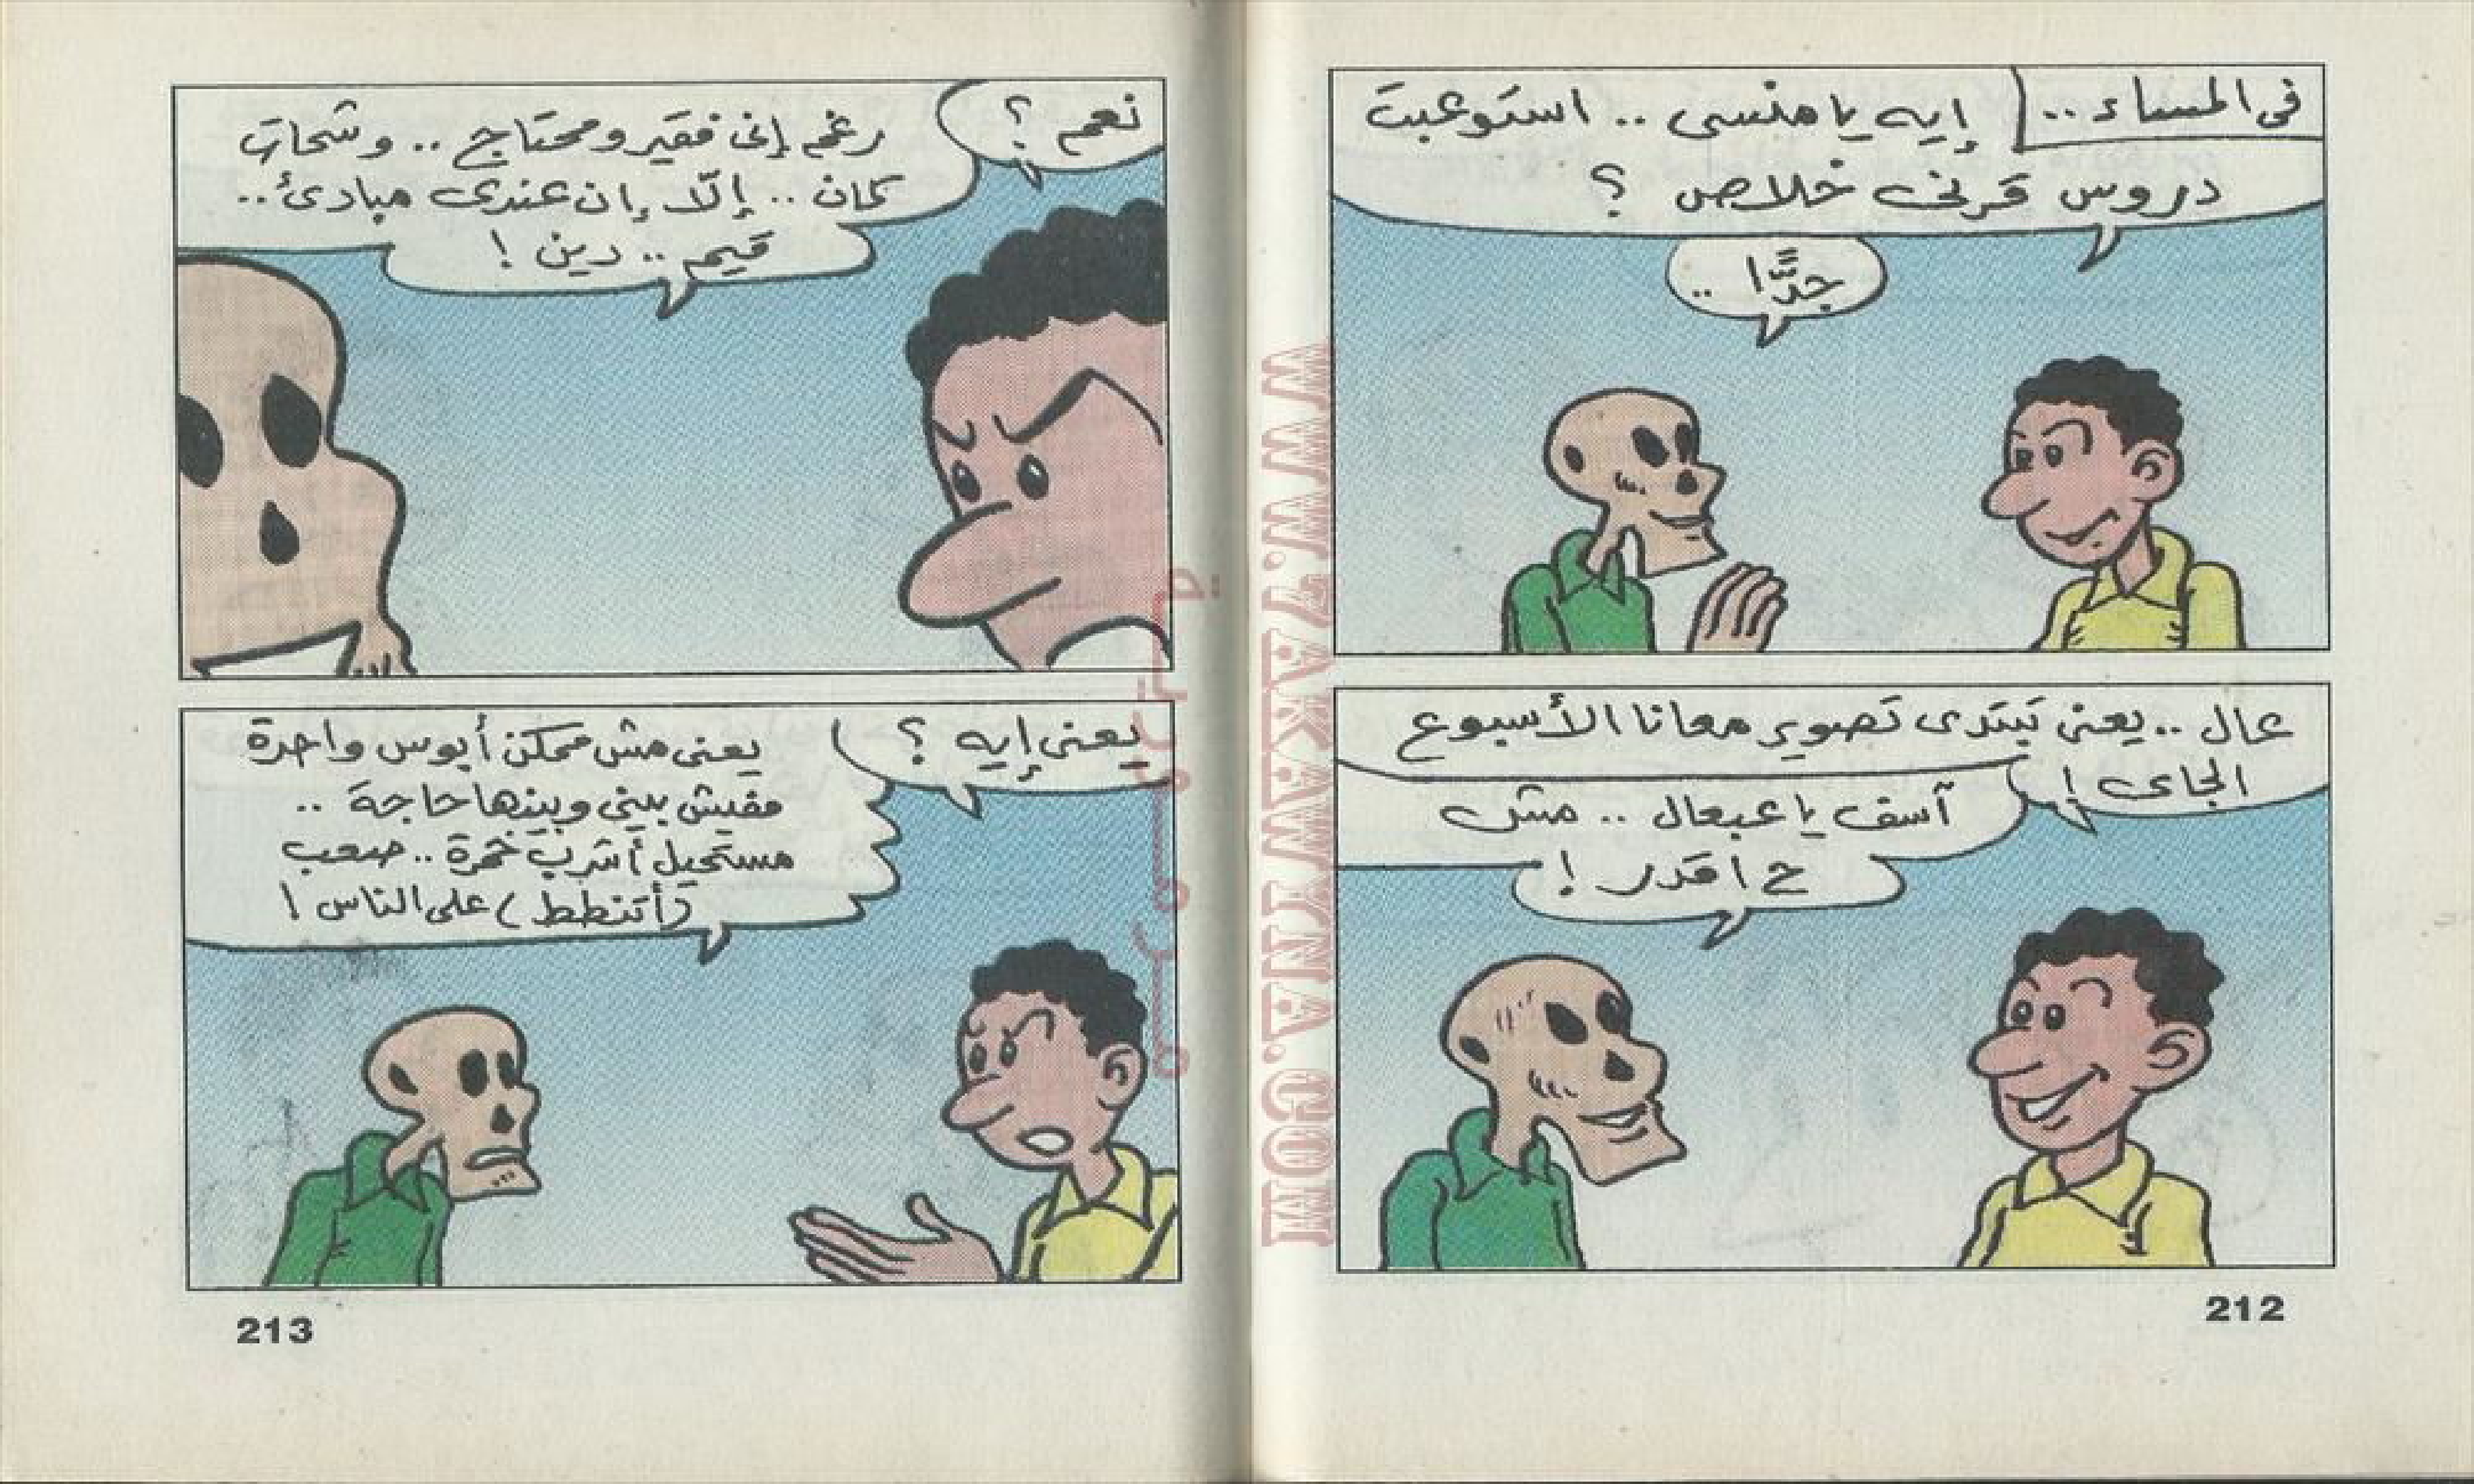 فى المساء ..
إيه يا منسى .. استوعبت
دروس قرنى خلاص ؟
جدًّا ..
عال .. يعنى تبتدى تصوير معانا الأسبوع
الجاى !
آسف يا عبعال .. مش
ح اقدر !
212
نعم ؟
رغم إنى فقير ومحتاج .. وشحات
كمان .. إلّا إن عندى مبادئ ..
قيم .. دين !
يعنى إيه ؟
يعنى مش ممكن أبوس واحدة
مفيش بينى وبينها حاجة ..
مستحيل أشرب خمرة .. صعب
(أتنطط) على الناس !
213
WWW.7AKAWINA.COM